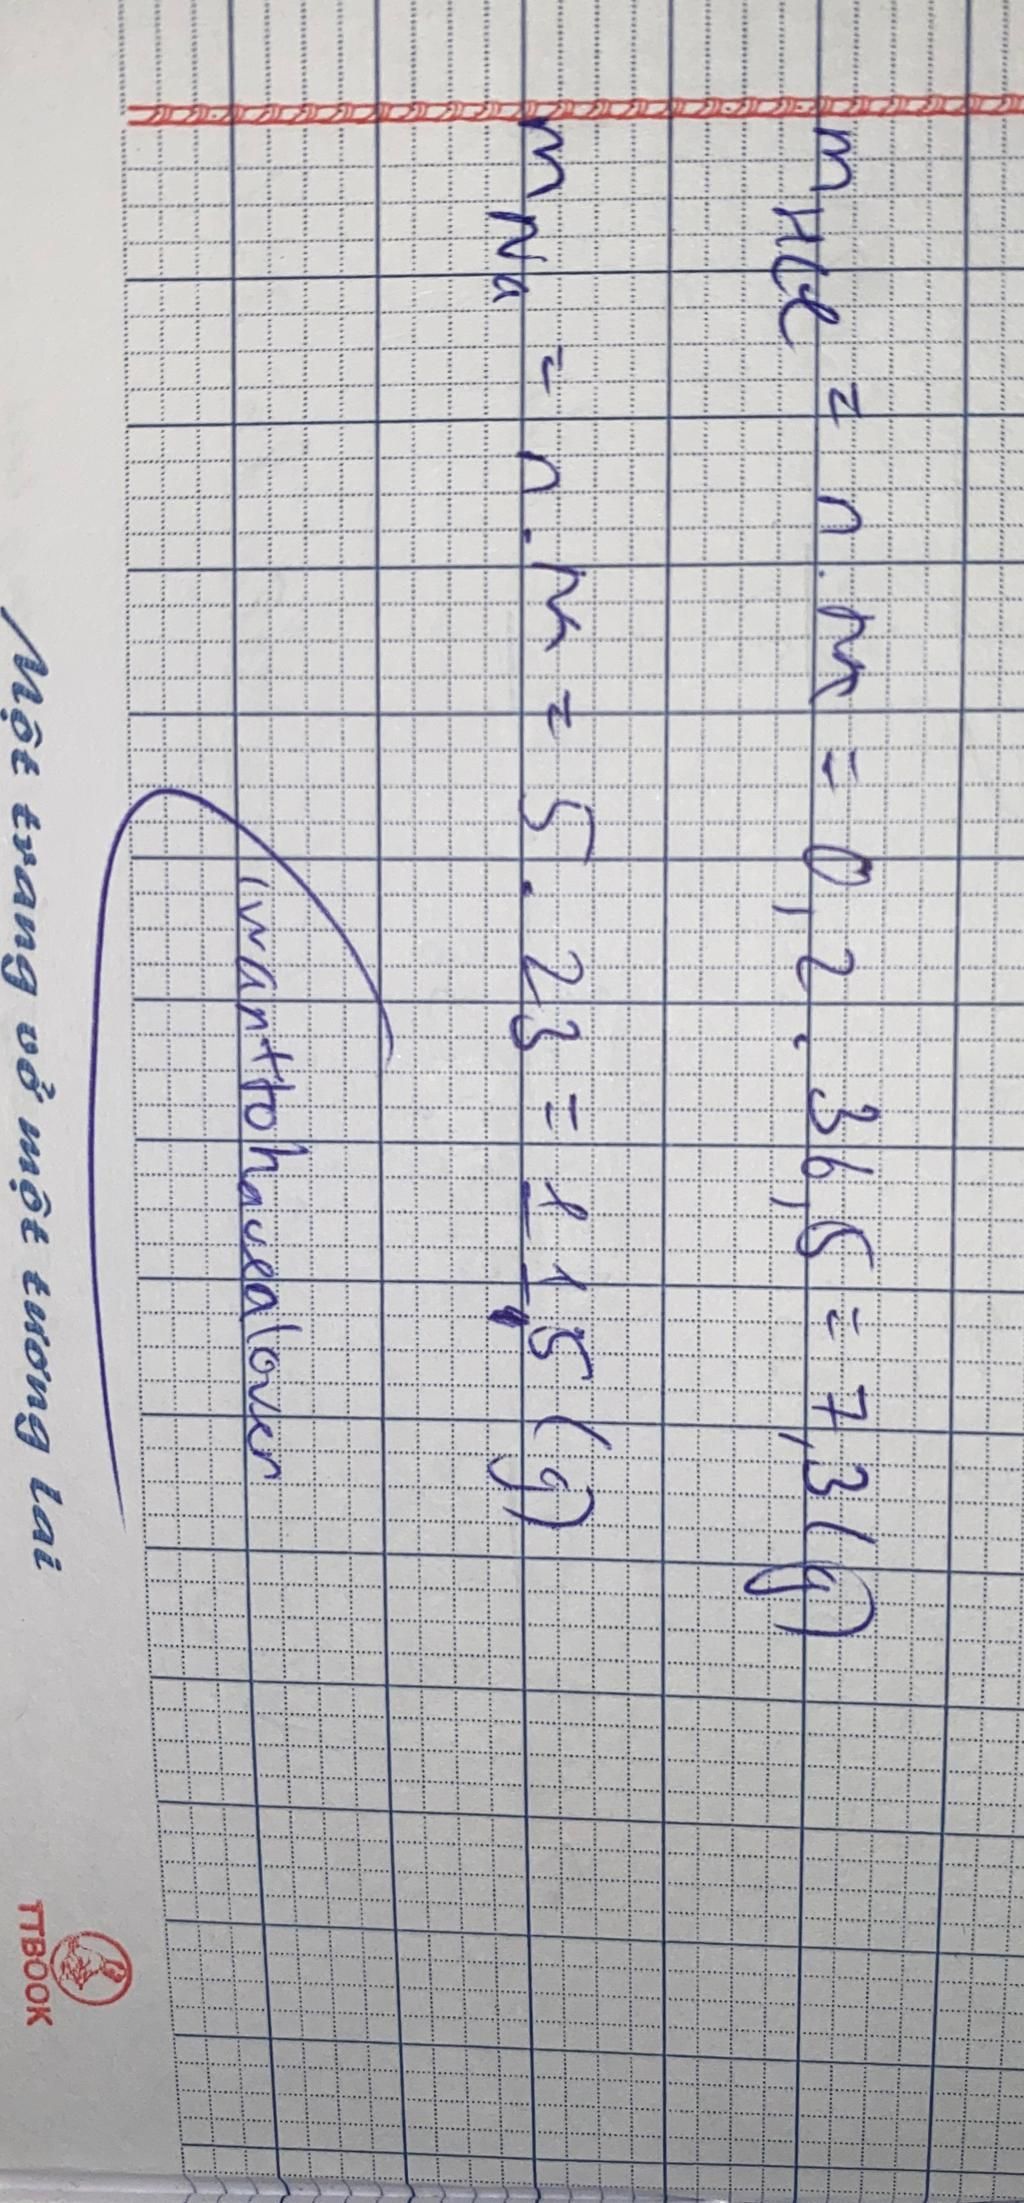 m HCl = n.M = 0,2. 36,5 = 7,3 (g)
m Na = n.M = 5.23 = 115 (g)
i want to have a lover
Một trang vở một tương lai
TTBOOK